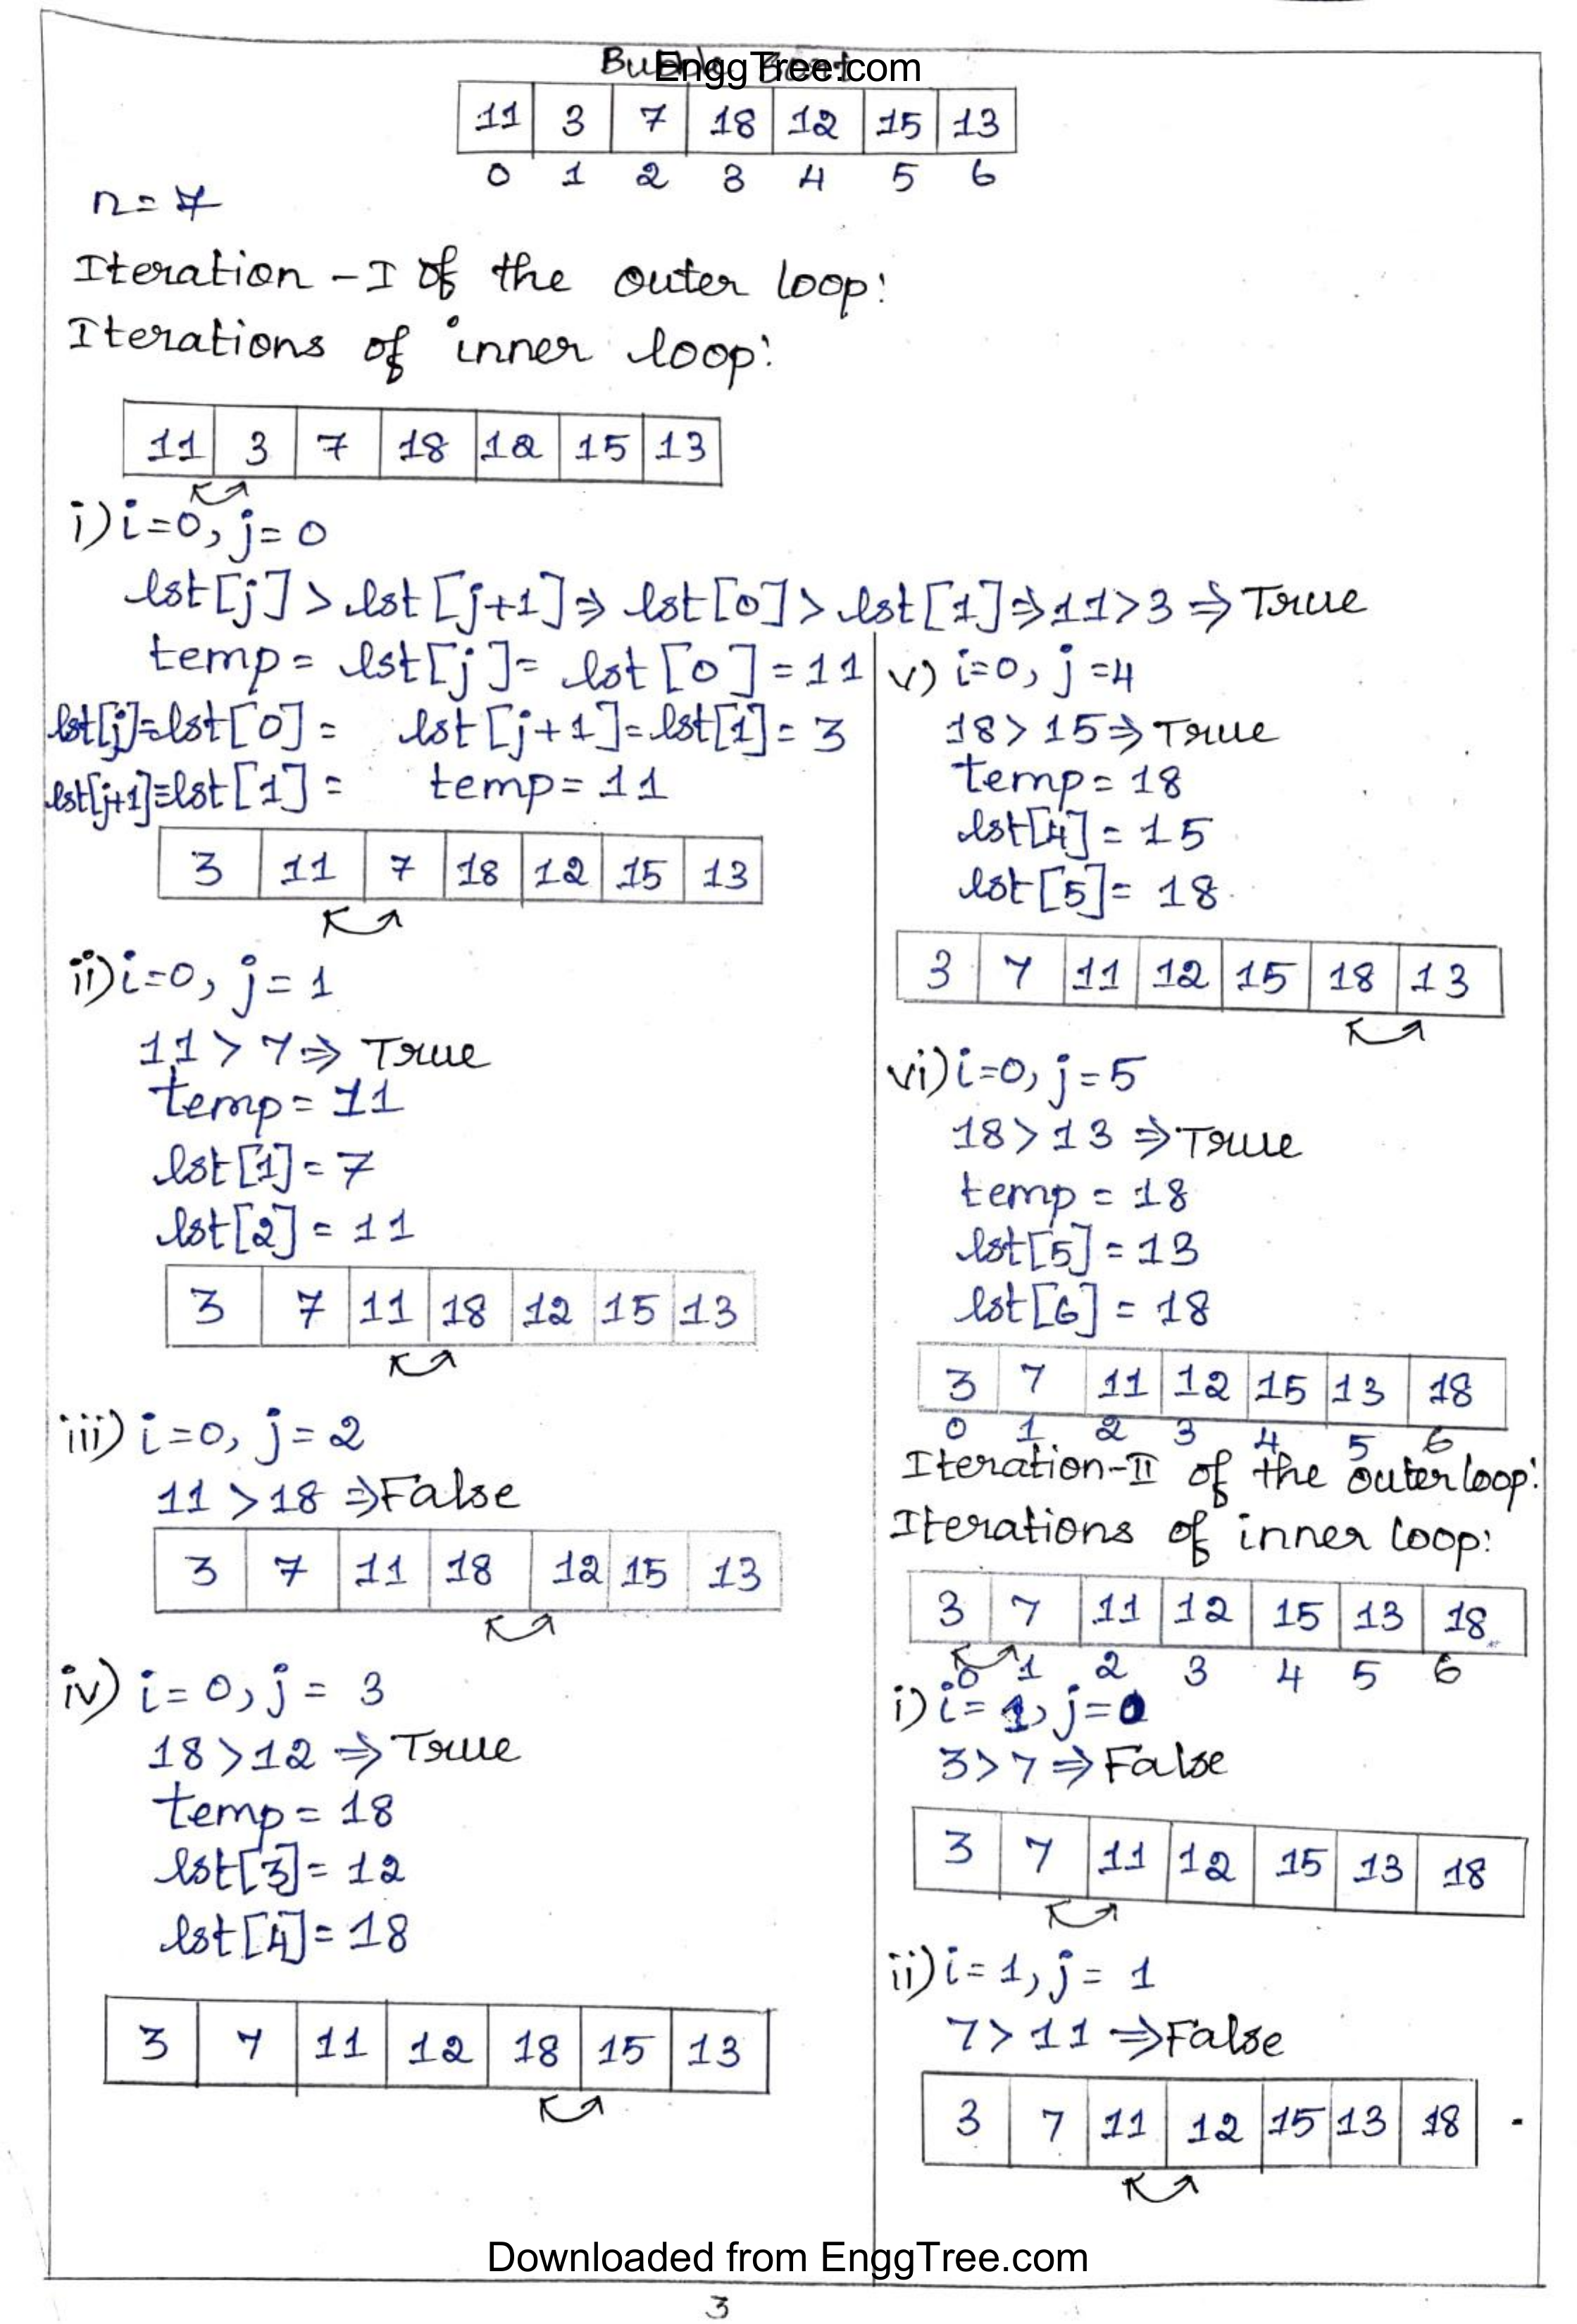 Bubble Sort
EnggTree.com
11 3 7 18 12 15 13
0 1 2 3 4 5 6
n=7
Iteration -I of the outer loop:
Iterations of inner loop:
11 3 7 18 12 15 13
i) i=0, j=0
lst[j] > lst[j+1] ⇒ lst[0] > lst[1] ⇒ 11>3 ⇒ True
temp = lst[j] = lst[0] = 11
lst[j]=lst[0] = lst[j+1] = lst[1] = 3
lst[j+1]=lst[1] = temp = 11
3 11 7 18 12 15 13
ii) i=0, j=1
11 > 7 ⇒ True
temp = 11
lst[1] = 7
lst[2] = 11
3 7 11 18 12 15 13
iii) i=0, j=2
11 > 18 ⇒ False
3 7 11 18 12 15 13
iv) i=0, j=3
18 > 12 ⇒ True
temp = 18
lst[3] = 12
lst[4] = 18
3 7 11 12 18 15 13
v) i=0, j=4
18 > 15 ⇒ True
temp = 18
lst[4] = 15
lst[5] = 18
3 7 11 12 15 18 13
vi) i=0, j=5
18 > 13 ⇒ True
temp = 18
lst[5] = 13
lst[6] = 18
3 7 11 12 15 13 18
0 1 2 3 4 5 6
Iteration-II of the outer loop:
Iterations of inner loop:
3 7 11 12 15 13 18
0 1 2 3 4 5 6
i) i=1, j=0
3 > 7 ⇒ False
3 7 11 12 15 13 18
ii) i=1, j=1
7 > 11 ⇒ False
3 7 11 12 15 13 18
Downloaded from EnggTree.com
3